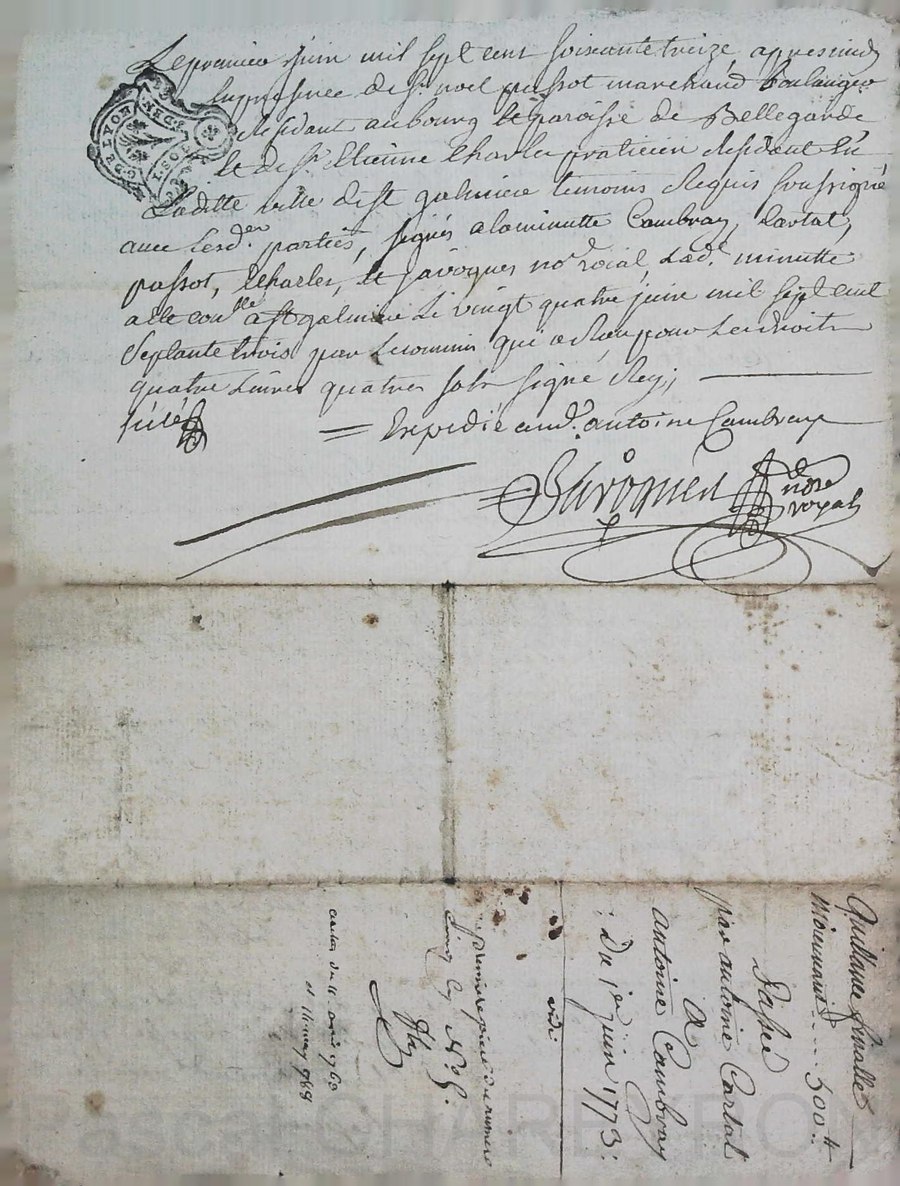 Le premier Juin mil sept cent soixante treize, apres midy
En presence de Sr. noel passot marchand boulanger
Residant au bourg et paroisse de Bellegarde
et de Sr. Etienne Charles praticien Residant En
Laditte ville de St galmier temoins Requis soussigné
avec Lesd. parties, signés a la minutte Cambray, Cartat,
passot, Charles, et Savoques no.re roial, Lad. minutte
a été con.lle a St galmier Le vingt quatre juin mil sept cent
Septante trois par Le commis qui a Reçu pour Les droits
quatre Livres quatres sols signé Rey;
Expedié aud. antoine Cambray
Savoques nore
royal
G. DE LYON
Quittance finalle
Moiennant 500 ₶.
Passée
par antoine Cartat
A
antoine Cambray
Du 1er juin 1773.
vide
premiere piece du numero
Cinq Cy No. 5.